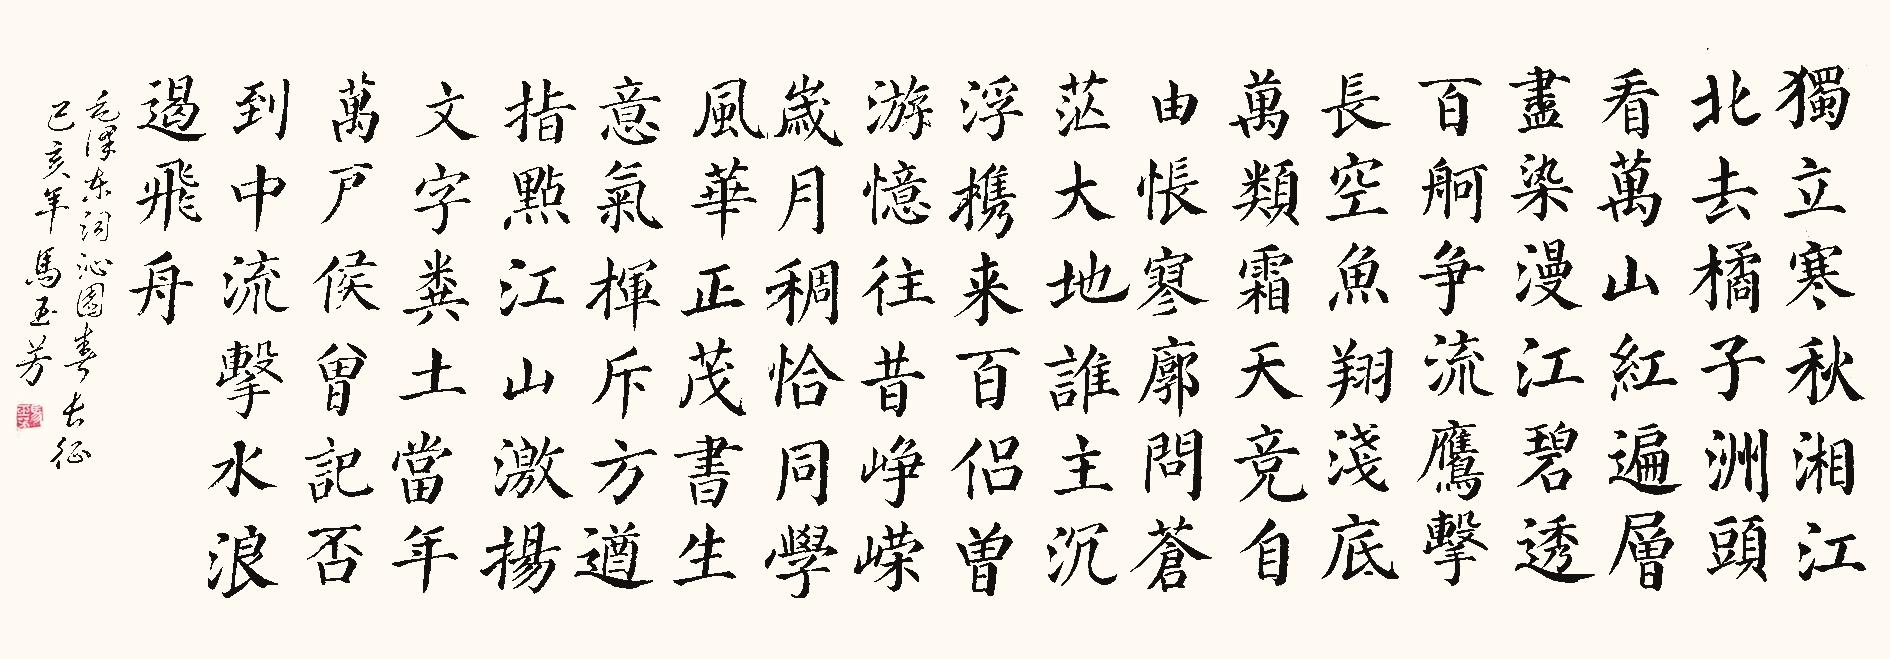 獨立寒秋湘江
北去橘子洲頭
看萬山紅遍層
盡染漫江碧透
百舸争流鷹擊
長空魚翔淺底
萬類霜天竞自
由悵寥廓問蒼
茫大地誰主沉
浮携来百侣曾
游憶往昔峥嵘
歲月稠恰同學
風華正茂書生
意氣揮斥方遒
指點江山激揚
文字粪土當年
萬戶侯曾記否
到中流擊水浪
遏飛舟
毛澤东词沁园春长征
己亥年馬玉芳